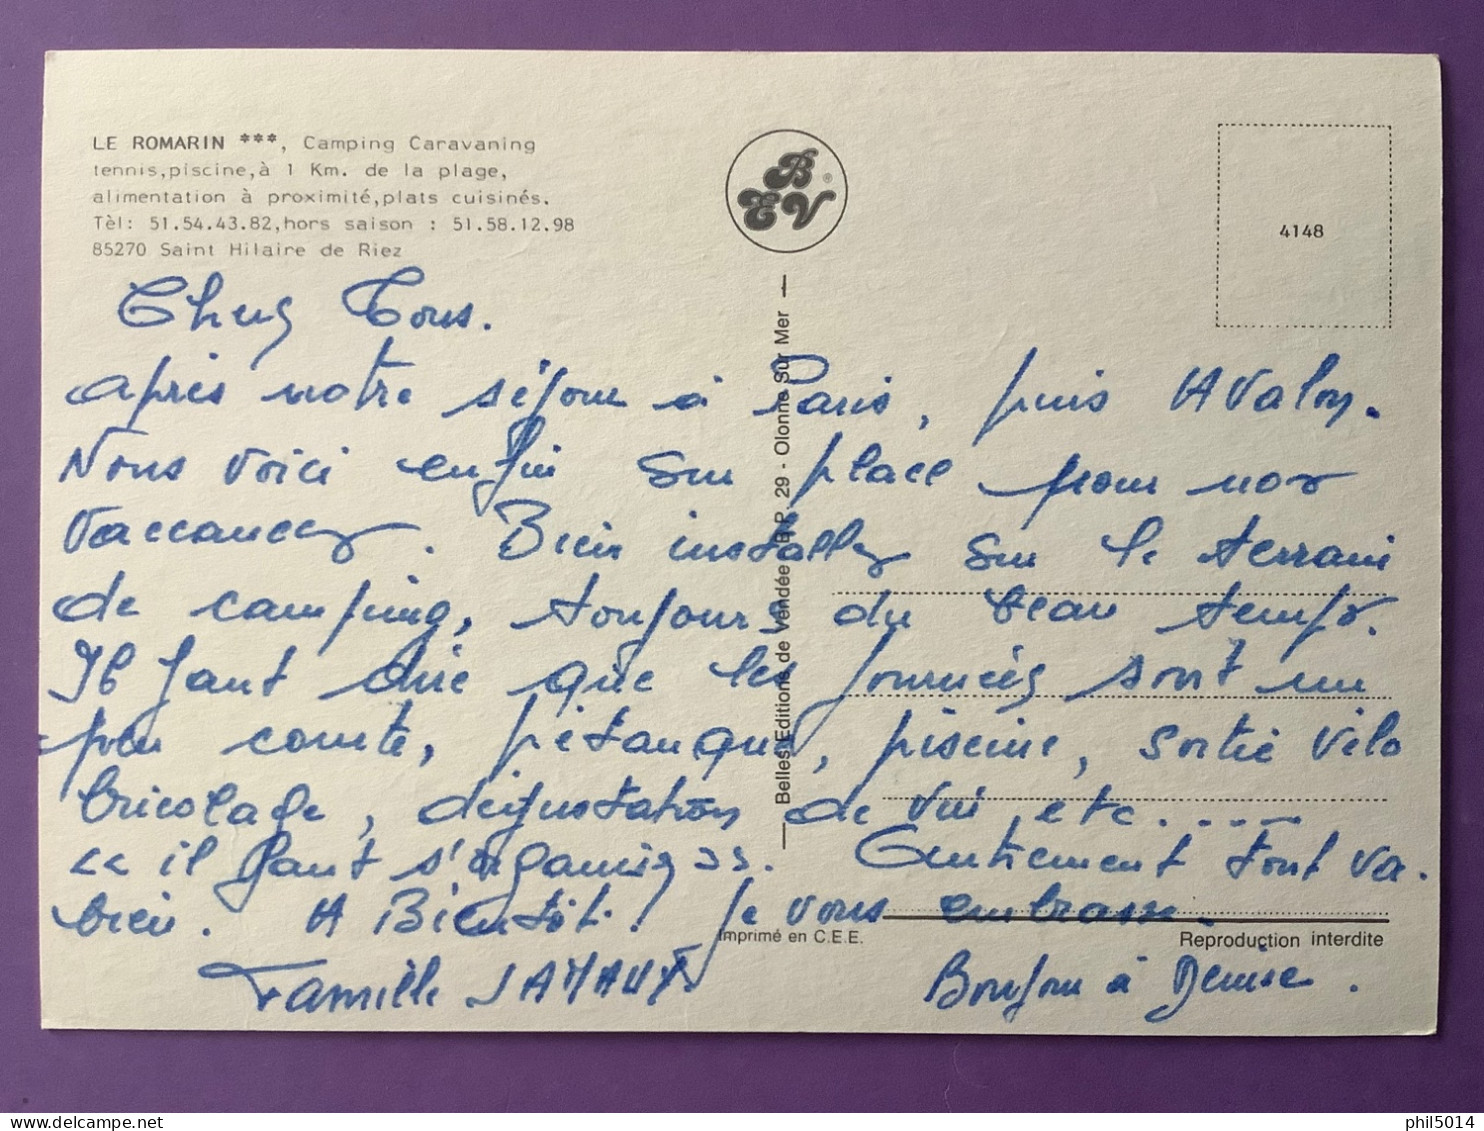 LE ROMARIN ***, Camping Caravaning
tennis,piscine,à 1 Km. de la plage,
alimentation à proximité,plats cuisinés.
Tèl: 51.54.43.82,hors saison : 51.58.12.98
85270 Saint Hilaire de Riez
BEV ®
4148
Belles Editions de Vendée - B.P. 29 - Olonne Sur Mer
Chers Tous.
après notre séjour à Paris, puis AValon.
Nous voici enfin sur place pour nos
Vaccances. Bien installés sur le terrain
de camping, toujours du beau temps.
Il faut dire que les journées sont un
peu courte, pétanque, piscine, sortie Vélo
bricolage, dégustation de vin, etc....
<< il faut s'organiser >>. Autrement tout va.
bien. A Bientôt! Je vous embrasse.
Imprimé en C.E.E.
Reproduction interdite
Famille
Bonjour à Denise.
phil5014